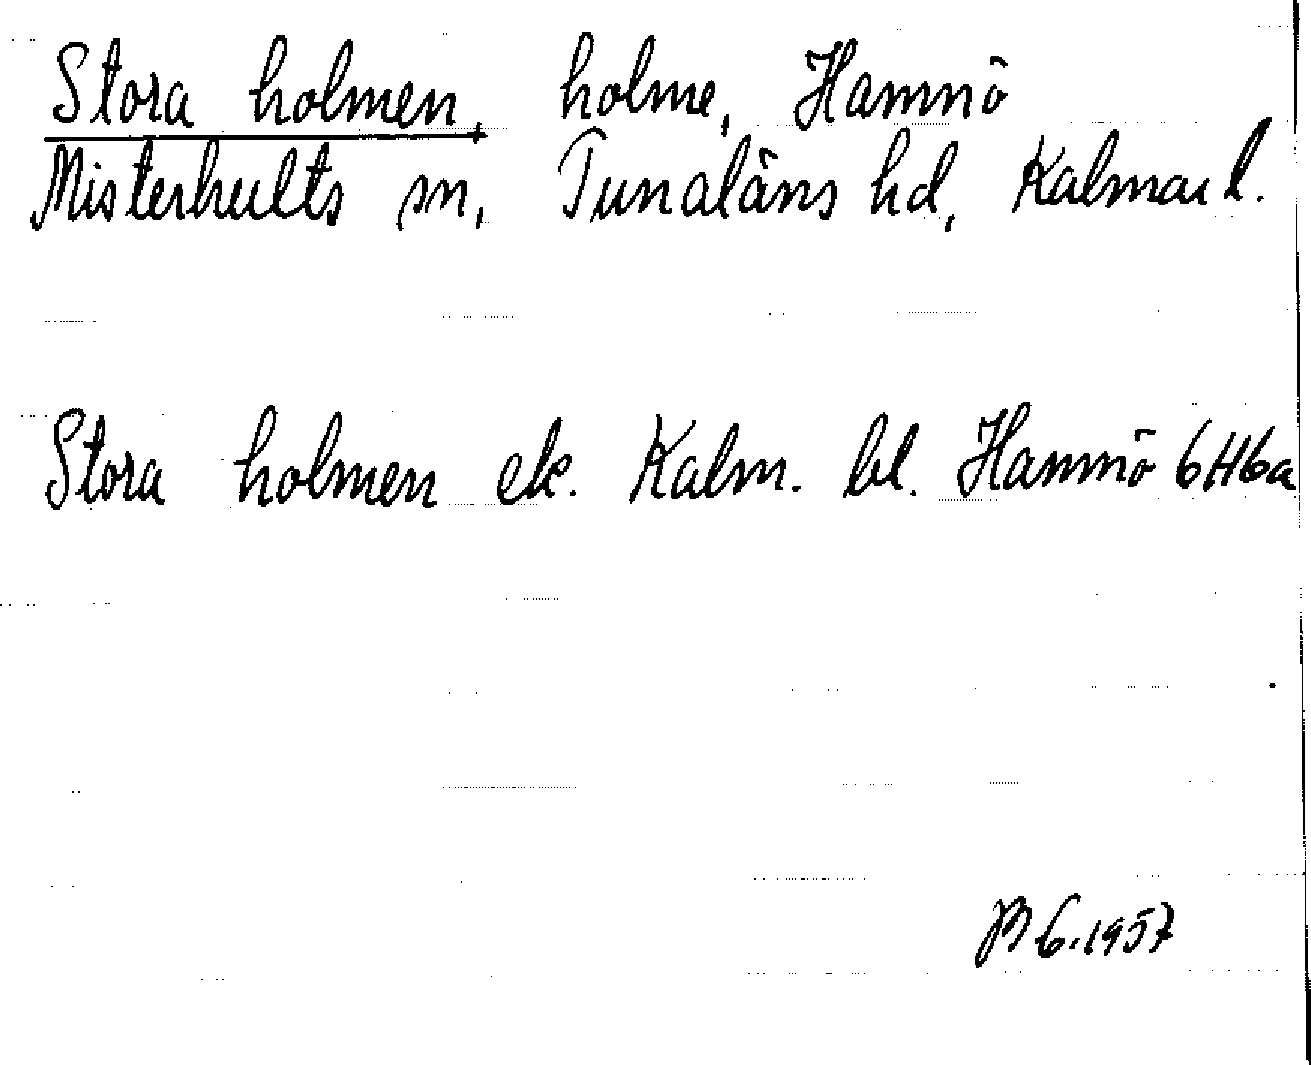 Stora holmen, holme, Hamnö
Misterhults sn, Tunaläns hd, Kalmar l.
Stora holmen ek. Kalm. bl. Hamnö 6H6a
6.1957